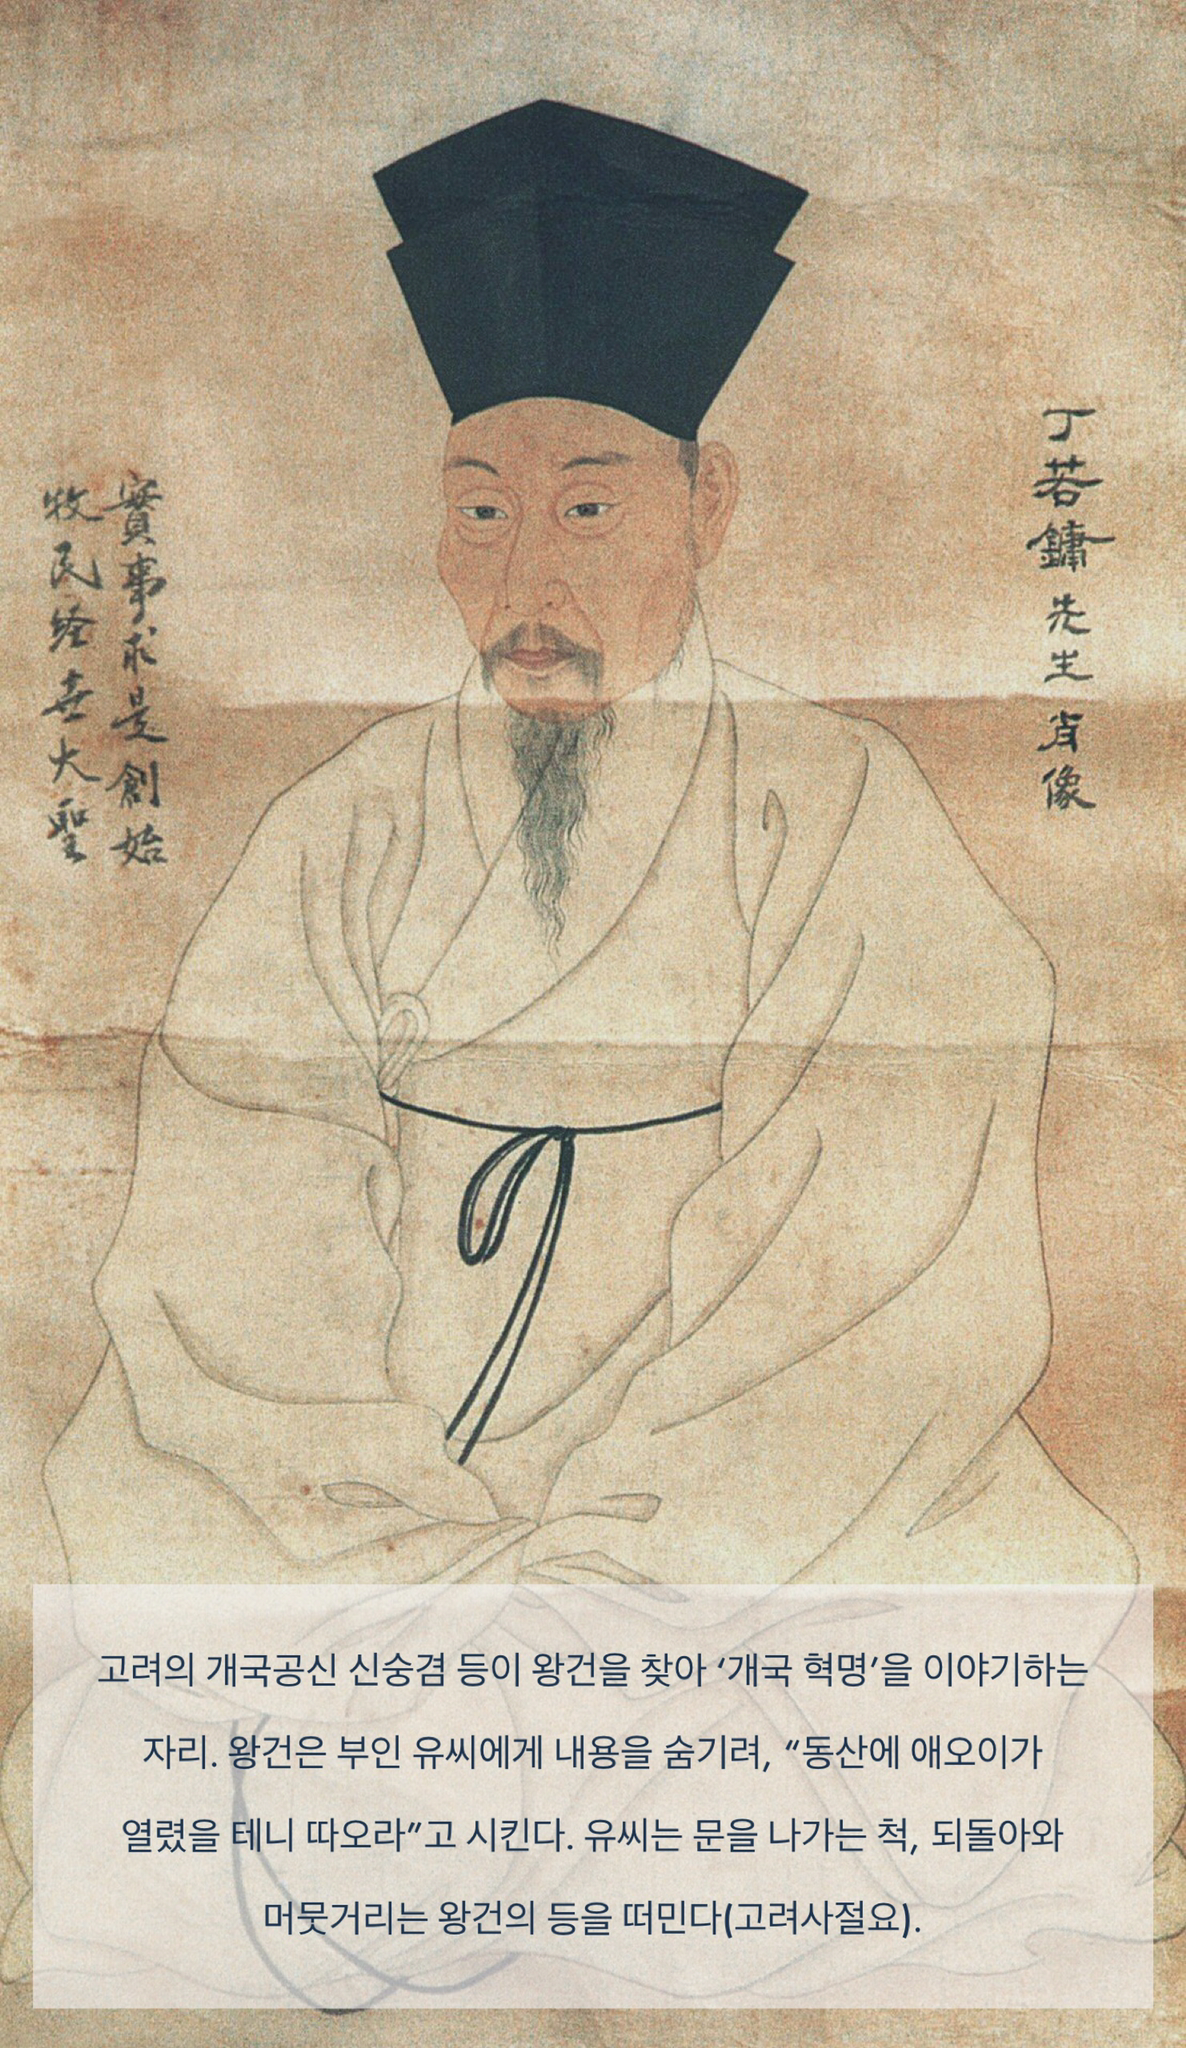 丁若鏞先生肖像
實事求是創始
牧民経世大聖
고려의 개국공신 신숭겸 등이 왕건을 찾아 ‘개국 혁명’을 이야기하는
자리. 왕건은 부인 유씨에게 내용을 숨기려, “동산에 애오이가
열렸을 테니 따오라”고 시킨다. 유씨는 문을 나가는 척, 되돌아와
머뭇거리는 왕건의 등을 떠민다(고려사절요).